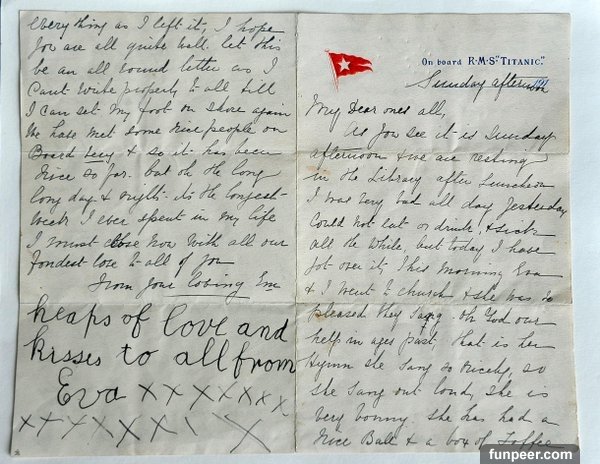 On board R·M·S "TITANIC."
Sunday afternoon
My Dear ones all,
As you see it is Sunday
afternoon & we are resting
in the Library after Luncheon
I was very bad all day yesterday
Could not eat or drink, & sick
all the while, but today I have
got over it, This Morning Eva
& I went to church & she was so
pleased they sang Oh God our
help in ages past, that is her
Hymn she sang so nicely, so
she sang out loud, she is
very bonny. she has had a
nice Ball & a box of Toffee
everything as I left it, I hope
you are all quite well. let this
be an all round letter as I
Cant write properly to all till
I can set My foot on shore again
We have met some nice people on
Board Lucy & so it has been
nice so far. but oh the long
long day & nights its the longest
week I ever spent in my life
I must close Now With all our
fondest love to all of you
From your loving Em
heaps of love and
kisses to all from
Eva x x x x x x x x
x x x x x x x x
funpeer.com